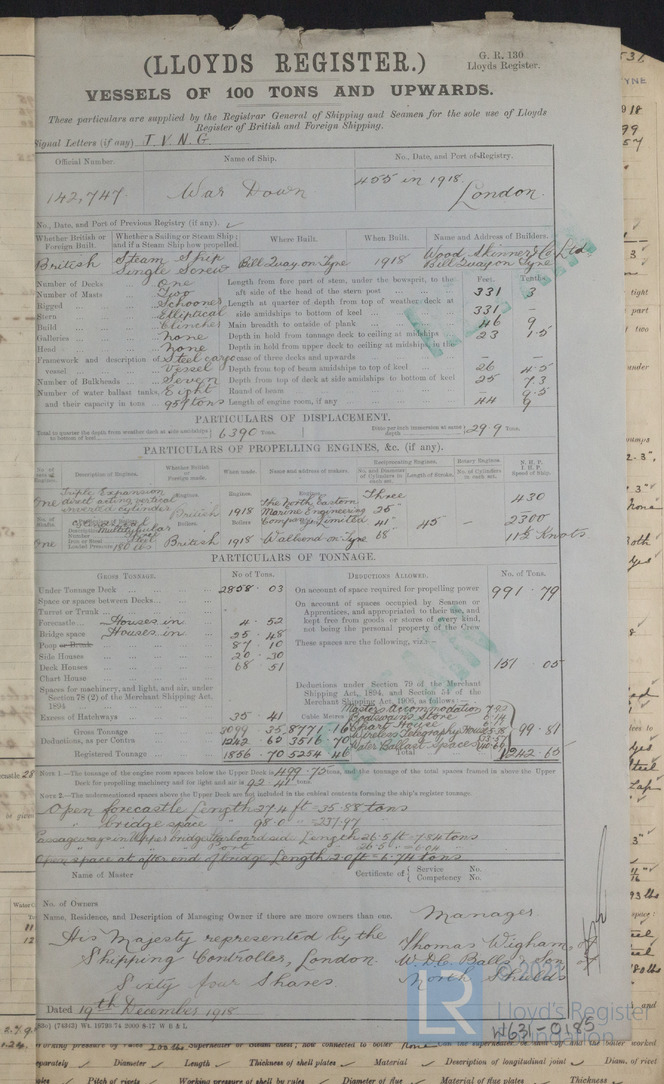 (LLOYDS REGISTER.)
G. R. 130
Lloyds Register.
VESSELS OF 100 TONS AND UPWARDS.
These particulars are supplied by the Registrar General of Shipping and Seamen for the sole use of Lloyds
Register of British and Foreign Shipping.
Signal Letters (if any) J. V. N. G.
Official Number. Name of Ship. No., Date, and Port of Registry.
142,747 War Down 455 in 1918 London.
No., Date, and Port of Previous Registry (if any).
Whether British or Foreign Built. Whether a Sailing or Steam Ship; and if a Steam Ship how propelled. Where Built. When Built. Name and Address of Builders.
British Steam Ship Single Screw Bill Quay on Tyne 1918 Wood Skinner & Co Ltd Bill Quay on Tyne
Feet. Tenths.
Number of Decks One Length from fore part of stem, under the bowsprit, to the aft side of the head of the stern post 331 3
Number of Masts Two
Rigged Schooner Length at quarter of depth from top of weather deck at side amidships to bottom of keel 331 —
Stern Elliptical
Build Clincher Main breadth to outside of plank 46 9
Galleries None Depth in hold from tonnage deck to ceiling at midships 23 1·5
Head None Depth in hold from upper deck to ceiling at midships, in the case of three decks and upwards — —
Framework and description of vessel Steel cargo vessel Depth from top of beam amidships to top of keel 26 4·5
Number of Bulkheads Seven Depth from top of deck at side amidships to bottom of keel 25 7·3
Number of water ballast tanks, Eight Round of beam — 9·5
and their capacity in tons 959 tons Length of engine room, if any 44 9
PARTICULARS OF DISPLACEMENT.
Total to quarter the depth from weather deck at side amidships to bottom of keel 6390 Tons. Ditto per inch immersion at same depth 29·9 Tons.
PARTICULARS OF PROPELLING ENGINES, &c. (if any).
No. of sets of Engines. Description of Engines. Whether British or Foreign made. When made. Name and address of makers. Reciprocating Engines. No. and Diameter of Cylinders in each set. Length of Stroke. Rotary Engines. No. of Cylinders in each set. N.H.P. I.H.P. Speed of Ship.
One Triple Expansion direct acting vertical inverted cylinders Engines. British Engines. 1918 Engines. The North Eastern Marine Engineering Company Limited Three 25" 41" 68" 45" — 430 2300 11½ Knots
No. of Shafts. Description Multitubular Boilers. Boilers
Number Three
Iron or Steel Steel
One Loaded Pressure 180 lbs British 1918 Wallsend on Tyne
PARTICULARS OF TONNAGE.
GROSS TONNAGE. No. of Tons. DEDUCTIONS ALLOWED. No. of Tons.
Under Tonnage Deck 2858·03 On account of space required for propelling power 991·79
Space or spaces between Decks On account of spaces occupied by Seamen or Apprentices, and appropriated to their use, and kept free from goods or stores of every kind, not being the personal property of the Crew
Turret or Trunk
Forecastle Houses in 4·52
Bridge space Houses in 25·48
Poop or Break 87·10 These spaces are the following, viz.:—
Side Houses 20·30
Deck Houses 68·51 151·05
Chart House
Spaces for machinery, and light, and air, under Section 78 (2) of the Merchant Shipping Act, 1894
Deductions under Section 79 of the Merchant Shipping Act, 1894, and Section 54 of the Merchant Shipping Act, 1906, as follows:—
Master's accommodation
Boatswain's Store
Chart House
Wireless Telegraphy House
Water Ballast Spaces
99·81
Excess of Hatchways 35·41 Cubic Metres.
Gross Tonnage 3099·35 8771·16
Deductions, as per Contra 1242·65 3516·70
Registered Tonnage 1856·70 5254·46 Total 1242·65
NOTE 1.—The tonnage of the engine room spaces below the Upper Deck is 499·75 tons, and the tonnage of the total spaces framed in above the Upper Deck for propelling machinery and for light and air is 92·41 tons.
NOTE 2.—The undermentioned spaces above the Upper Deck are not included in the cubical contents forming the ship's register tonnage.
Open forecastle Length 27·4 ft = 35·88 tons
" bridge space " 98·0 " = 237·97 "
Passageway in Upper bridge Starboard side Length 26·5 ft = 7·84 tons
" " " Port " " 26·5 " = 6·04 "
Open space at after end of bridge Length 2·0 ft = 6·74 tons
Name of Master Certificate of { Service No.
Competency No.
No. of Owners
Name, Residence, and Description of Managing Owner if there are more owners than one. Manager
His Majesty represented by the Thomas Wigham of
Shipping Controller, London. W. D. C. Balls & Son
Sixty four Shares North Shields
Dated 19th December 1918
© 2021
LR
Lloyd's Register
Foundation
W631-0185